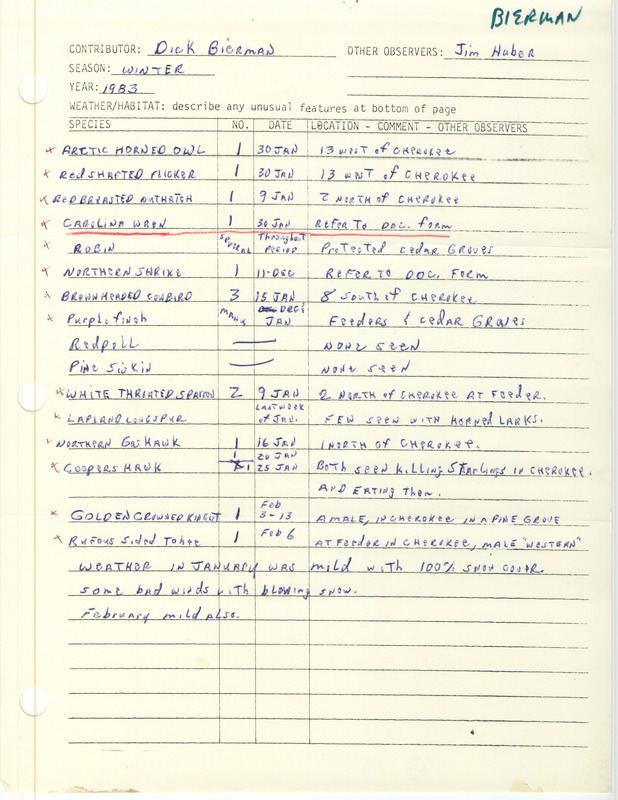 BIERMAN
CONTRIBUTOR: Dick Bierman OTHER OBSERVERS: Jim Huber
SEASON: WINTER
YEAR: 1983
WEATHER/HABITAT: describe any unusual features at bottom of page
SPECIES NO. DATE LOCATION - COMMENT - OTHER OBSERVERS
x ARCTIC HORNED OWL 1 30 JAN 13 west of CHEROKEE
x Red SHAFTED FLICKER 1 30 JAN 13 west of CHEROKEE
x RED BREASTED NUTHATCH 1 9 JAN 2 NORTH of CHEROKEE
x CAROLINA WREN 1 30 JAN REFER TO DOC. form
x ROBIN SEVERAL Throughout PERIOD Protected cedar Groves
x NORTHERN SHRIKE 1 11-DEC REFER TO DOC. FORM
x BROWNHEADED COWBIRD 3 15 JAN 8 SOUTH of CHEROKEE
x Purple finch MANY DEC & JAN Feeders & cedar GROVES
Redpoll — NONE SEEN
Pine Siskin — NONE SEEN
x WHITE THROATED SPARROW 2 9 JAN 2 NORTH of CHEROKEE AT FEEDER.
x LAPLAND LONGSPUR LAST WEEK of JAN. FEW SEEN WITH HORNED LARKS.
x NORTHERN GOSHAWK 1 16 JAN 1 NORTH of CHEROKEE.
x COOPERS HAWK 1 20 JAN
1 25 JAN Both seen killing STARLINGS IN CHEROKEE.
AND EATING Them.
x GOLDEN CROWNED KINGLET 1 Feb 3-13 A MALE, IN CHEROKEE IN A PINE GROVE
x RUFOUS Sided Tohee 1 Feb 6 AT FEEDER IN CHEROKEE, MALE "WESTERN"
WEATHER IN JANUARY WAS mild with 100% SNOW COVER.
some bad winds with blowing snow.
February mild also.